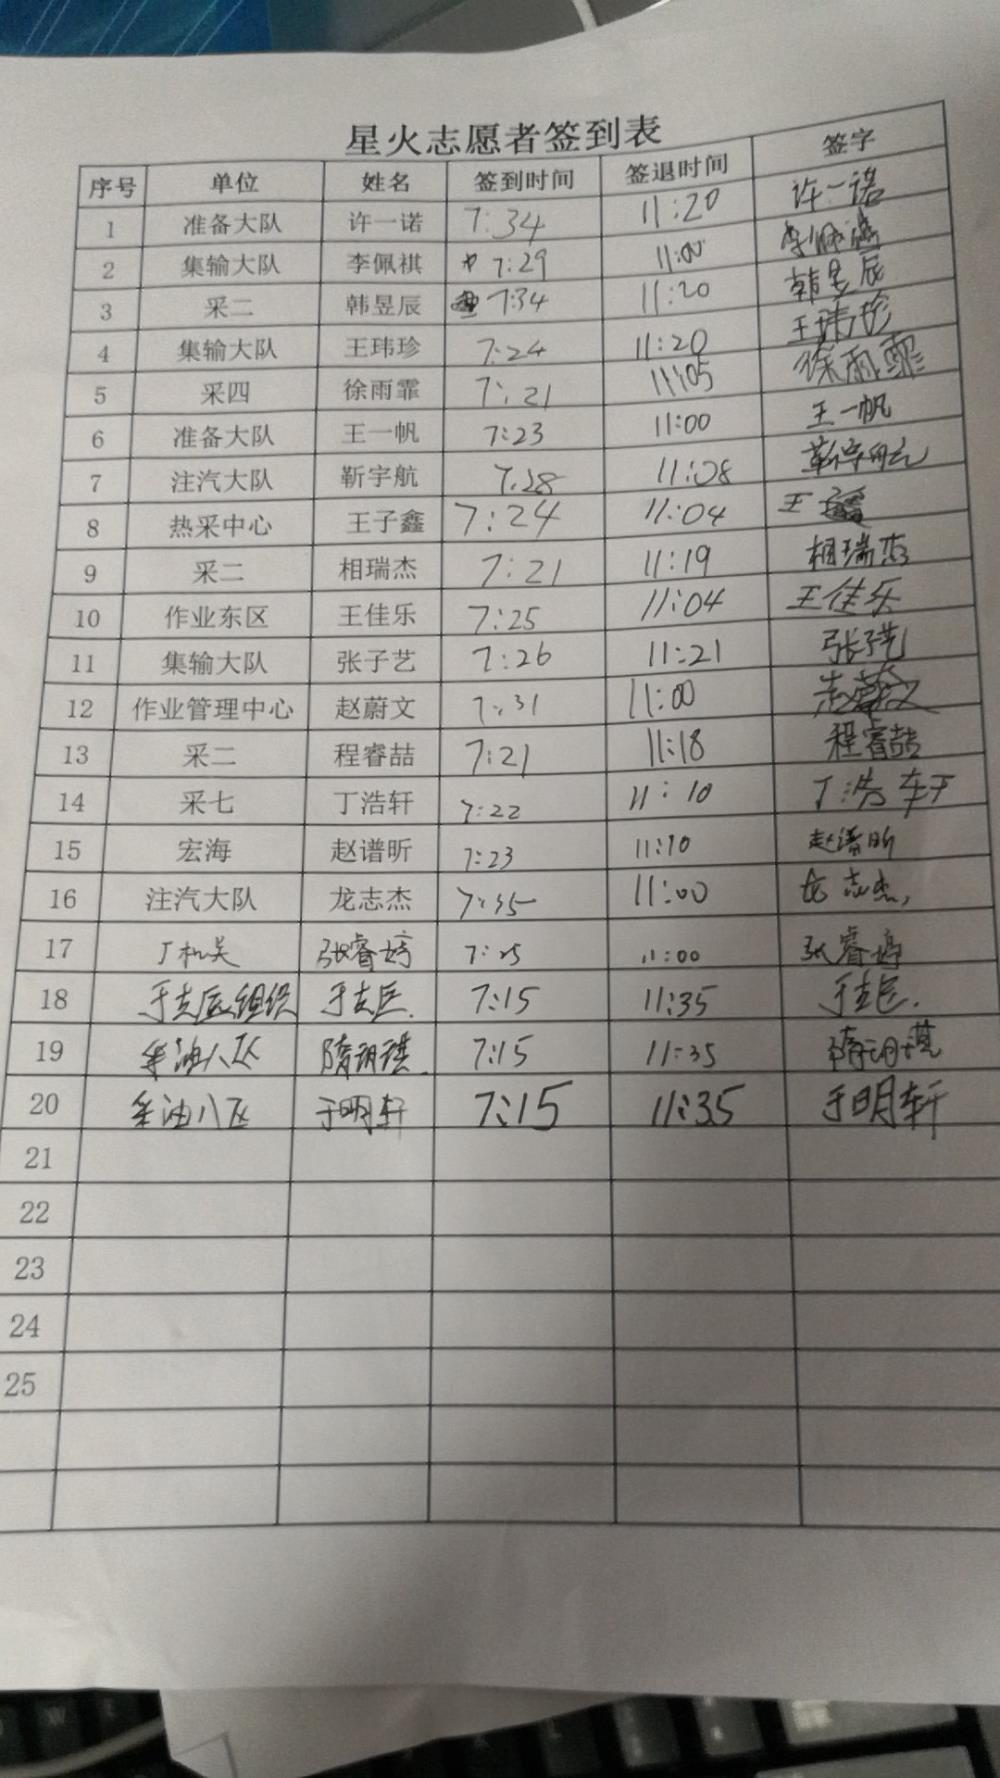 星火志愿者签到表
序号 单位 姓名 签到时间 签退时间 签字
1 准备大队 许一诺 7:34 11:20 许一诺
2 集输大队 李佩祺 7:29 11:00
3 采二 韩昱辰 7:34 11:20 韩昱辰
4 集输大队 王玮珍 7:24 11:20 王玮珍
5 采四 徐雨霏 7:21 11:05 徐雨霏
6 准备大队 王一帆 7:23 11:00 王一帆
7 注汽大队 靳宇航 7:28 11:08 靳宇航
8 热采中心 王子鑫 7:24 11:04 王
9 采二 相瑞杰 7:21 11:19 相瑞杰
10 作业东区 王佳乐 7:25 11:04 王佳乐
11 集输大队 张子艺 7:26 11:21 张子艺
12 作业管理中心 赵蔚文 7:31 11:00 赵蔚文
13 采二 程睿喆 7:21 11:18 程睿喆
14 采七 丁浩轩 7:22 11:10 丁浩轩
15 宏海 赵谱昕 7:23 11:10 赵谱昕
16 注汽大队 龙志杰 7:35 11:00 龙志杰
17 张睿婷 7:25 11:00 张睿婷
18 7:15 11:35
19 采油八区 7:15 11:35
20 采油八区 于明轩 7:15 11:35 于明轩
21
22
23
24
25